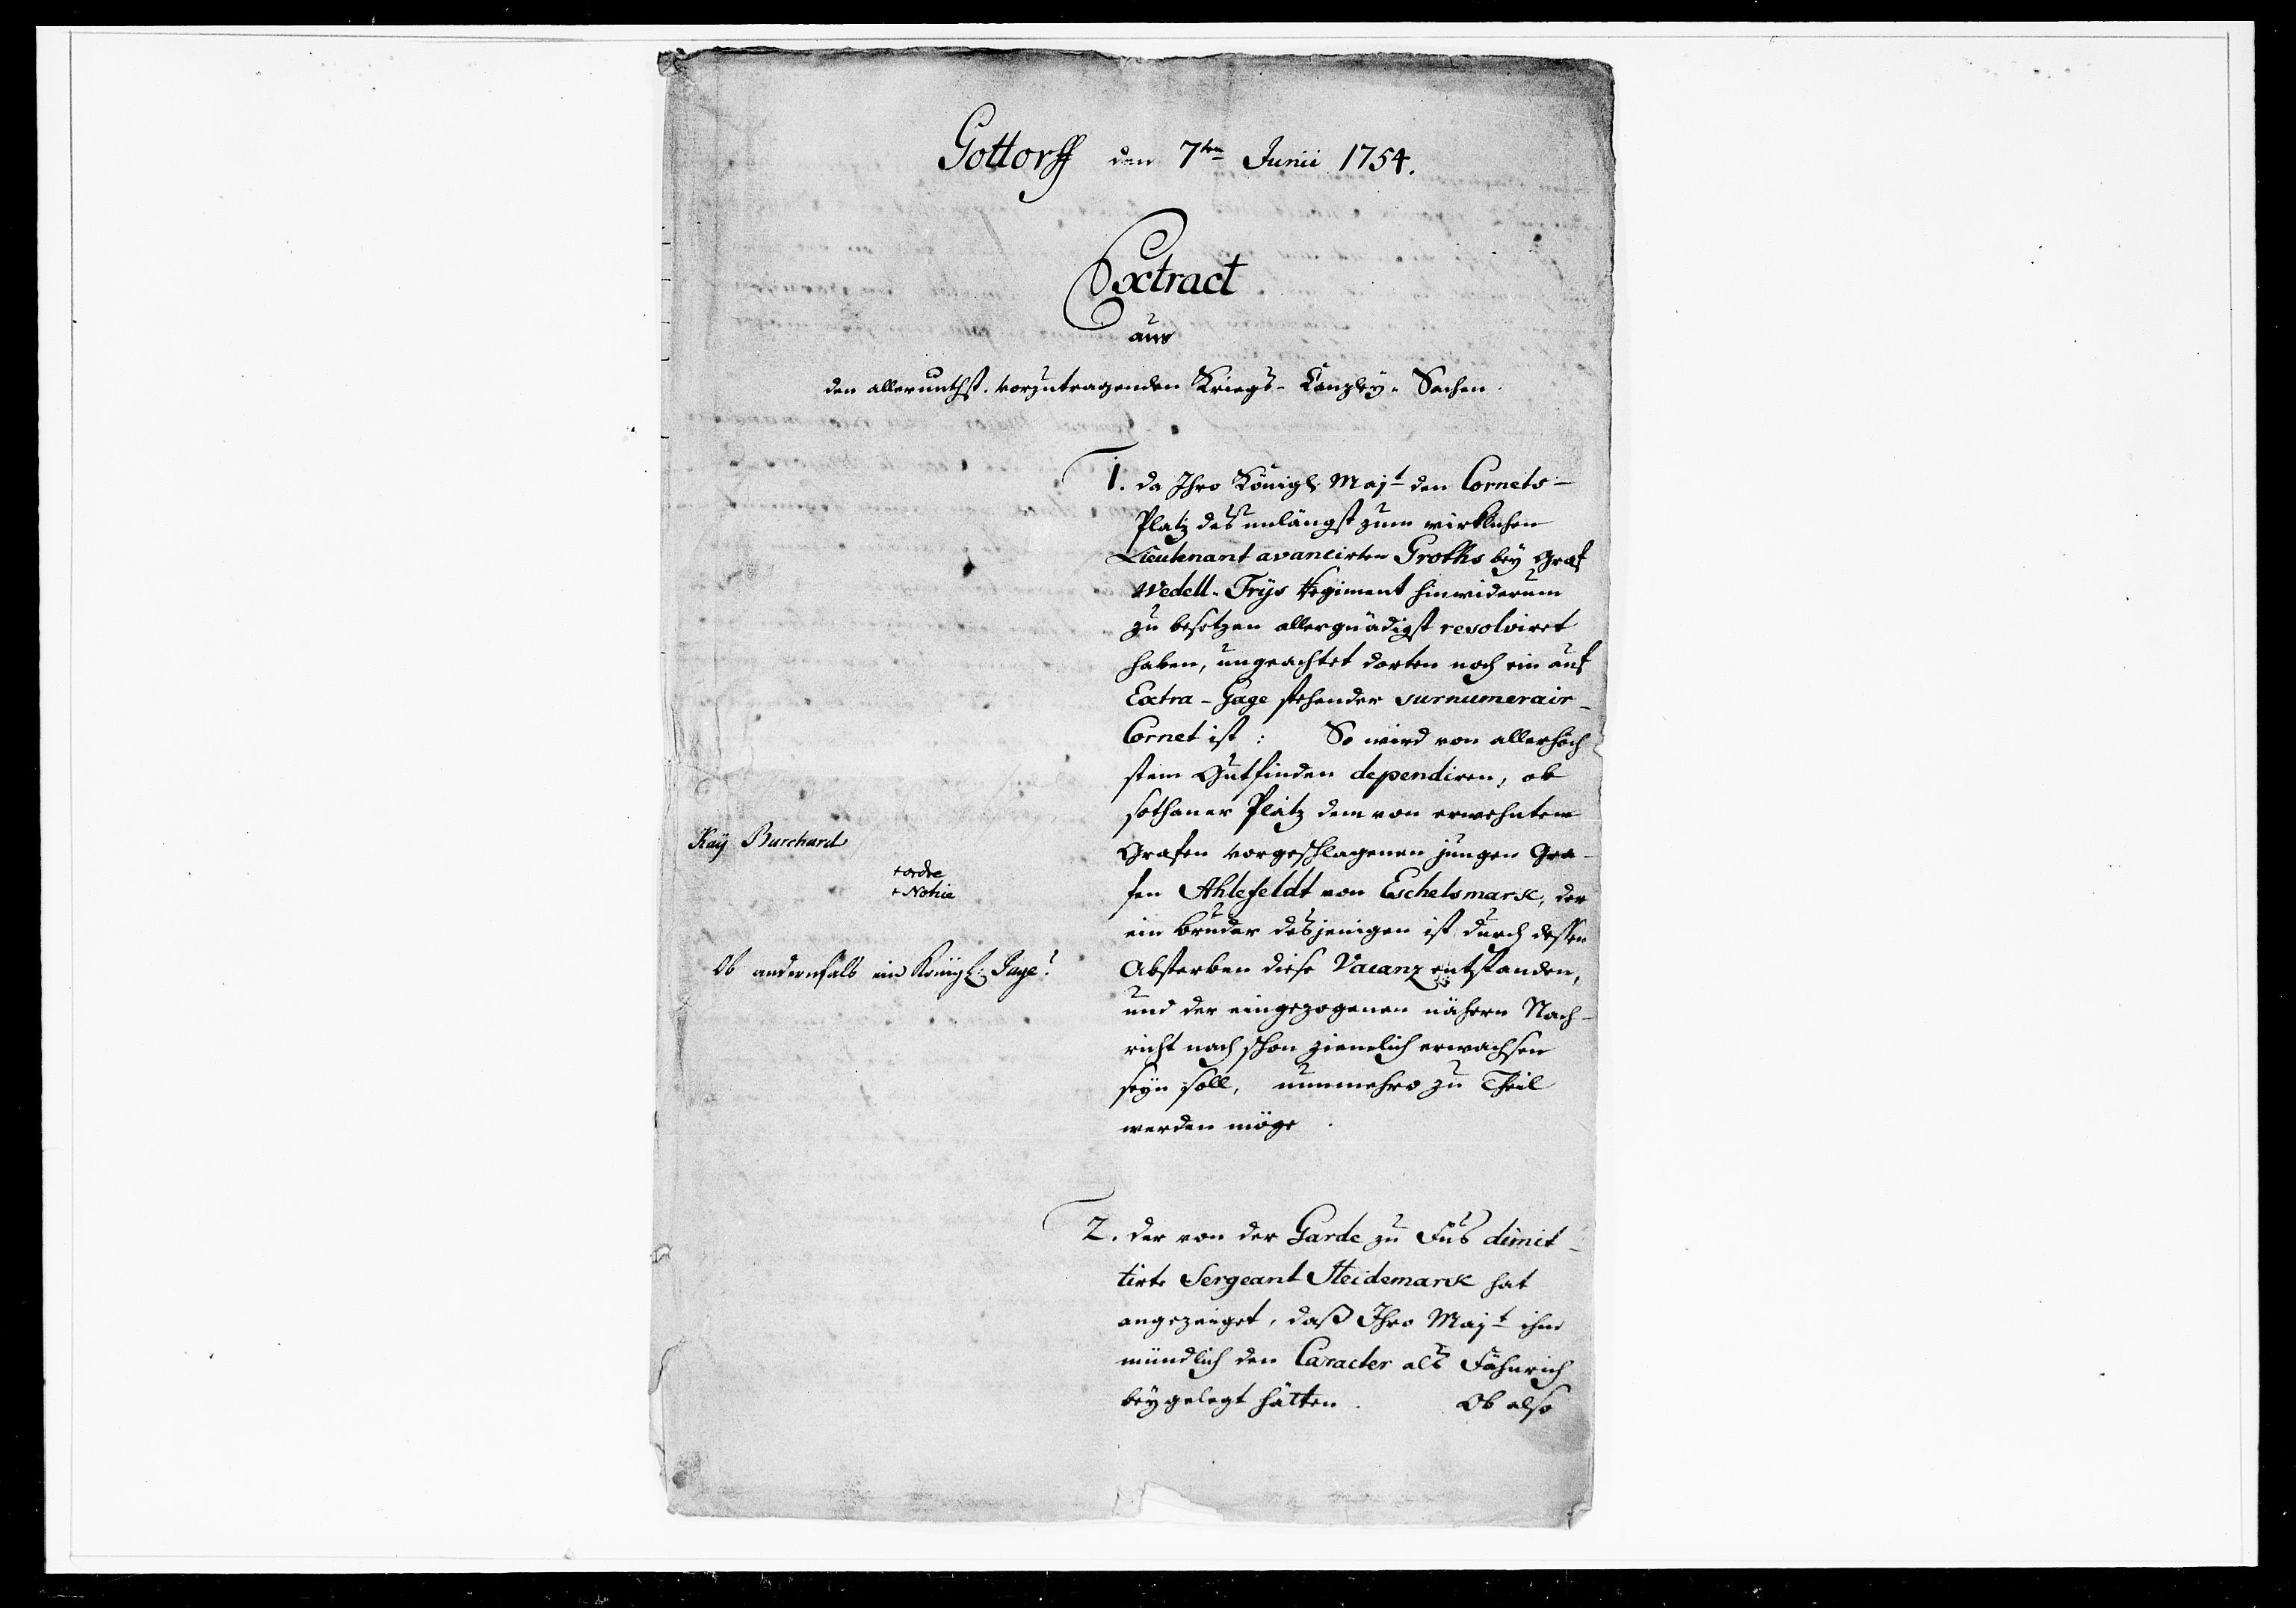 Gottorff den 7ten Junii 1754.
Extract
aus
den allerunthst. vorzutragenden Kriegs-Canzley-Sachen.
1. Da Ihro Königl. Majt den Cornets-
Platz des unlängst zum wirklichen
Lieutenant avancirten Groths bey Graf
Wedell-Frijs Regiment hinwiderum
zu besetzen allergnädigst resolviret
haben, ungeachtet dorten noch ein auf
Extra-Gage stehender surnumerair-
Cornet ist: So wird von allerhöch
stem Gutfinden dependiren, ob
sothaner Platz dem von erwehntem
Grafen vorgeschlagenen jungen Gra-
fen Ahlefeldt von Eschelsmark, der
ein Bruder desjenigen ist durch dessen
Absterben diese Vacanz entstanden,
und der eingezogenen nähern Nach-
richt nach schon ziemlich erwachsen
seyn soll, nunmehro zu Theil
werden möge.
Kay Burchard
+ ordre
+ Notice
Ob andernfalls ein Königl: Page?
2. Der von der Garde zu Fus dimit-
tirte Sergeant Heidemark hat
angezeiget, daß Ihro Majt ihm
mündlich den Caracter als Fähnrich
beygelegt hätten. Ob also